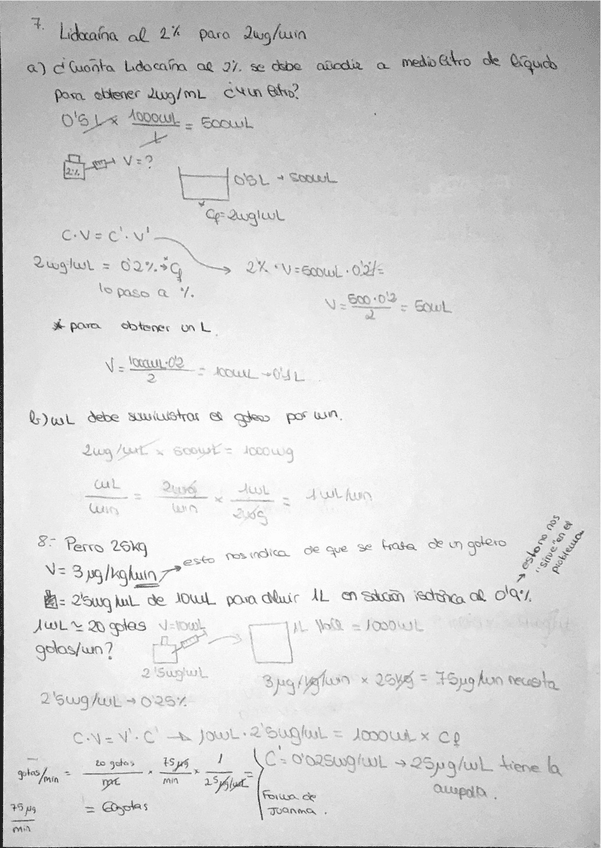 7. Lidocaína al 2% para 2mg/min
a) ¿Cuánta Lidocaína al 2% se debe añadir a medio litro de líquido
para obtener 2mg/mL ¿4 un litro?
0'5 L × 1000mL / L = 500mL
2% V=?
0'5L → 500mL
Cf=2mg/mL
C·V = C'·V'
2mg/mL = 0'2% → Cf
lo paso a %.
2% · V = 500mL · 0'2% =
V = 500·0'2 / 2 = 50mL
* para obtener un L.
V = 1000mL·0'2 / 2 = 100mL → 0'1L
b) mL debe suministrar el gotero por min.
2mg/mL × 500mL = 1000mg
mL / min = 2mg / min × 1mL / 2mg = 1mL/min
8.- Perro 25kg
V = 3 µg/kg/min → esto nos indica de que se trata de un gotero
→ esto no nos "sirve" en el problema
= 2'5mg/mL de 10mL para diluir 1L en solución isotónica al 0'9%
1mL ≃ 20 gotas V=10mL
1L = 1000mL
gotas/min?
2'5mg/mL
3µg/kg/min × 25kg = 75µg/min necesita
2'5mg/mL → 0'25%
C·V = V'·C' → 10mL · 2'5mg/mL = 1000mL × Cf
gotas/min = 20 gotas / mL × 75µg / min × 1 / 25µg/mL =
C' = 0'025mg/mL → 25µg/mL tiene la
ampolla.
= 60gotas
Forma de
Juanma.
75µg / min